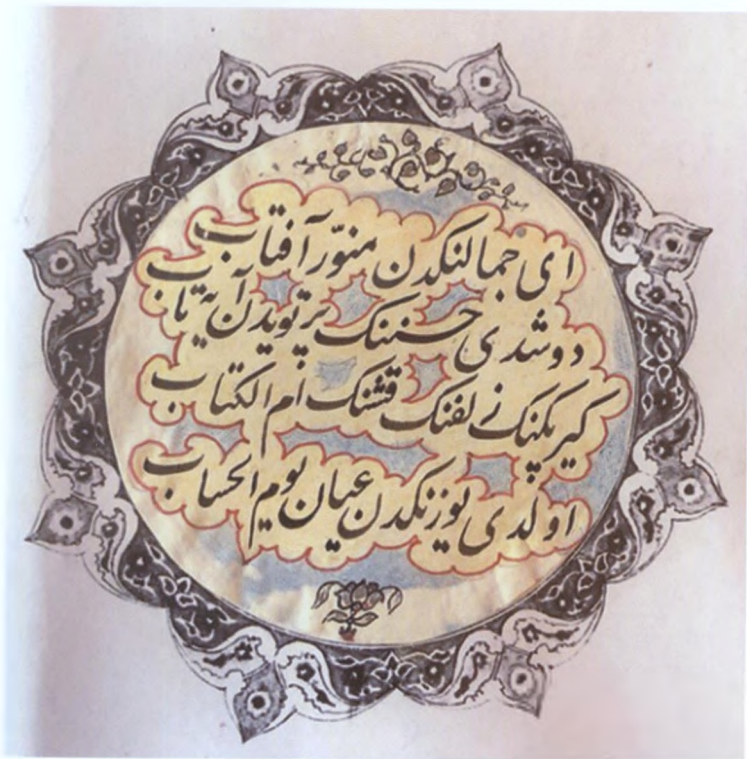 ای جمالنکدن منوّر آفتاب
دوشدی حسننک پرتویدن آیه تاب
کیرپکنک زلفنک قشنک ام الکتاب
اولدی یوزنکدن عیان یوم الحساب